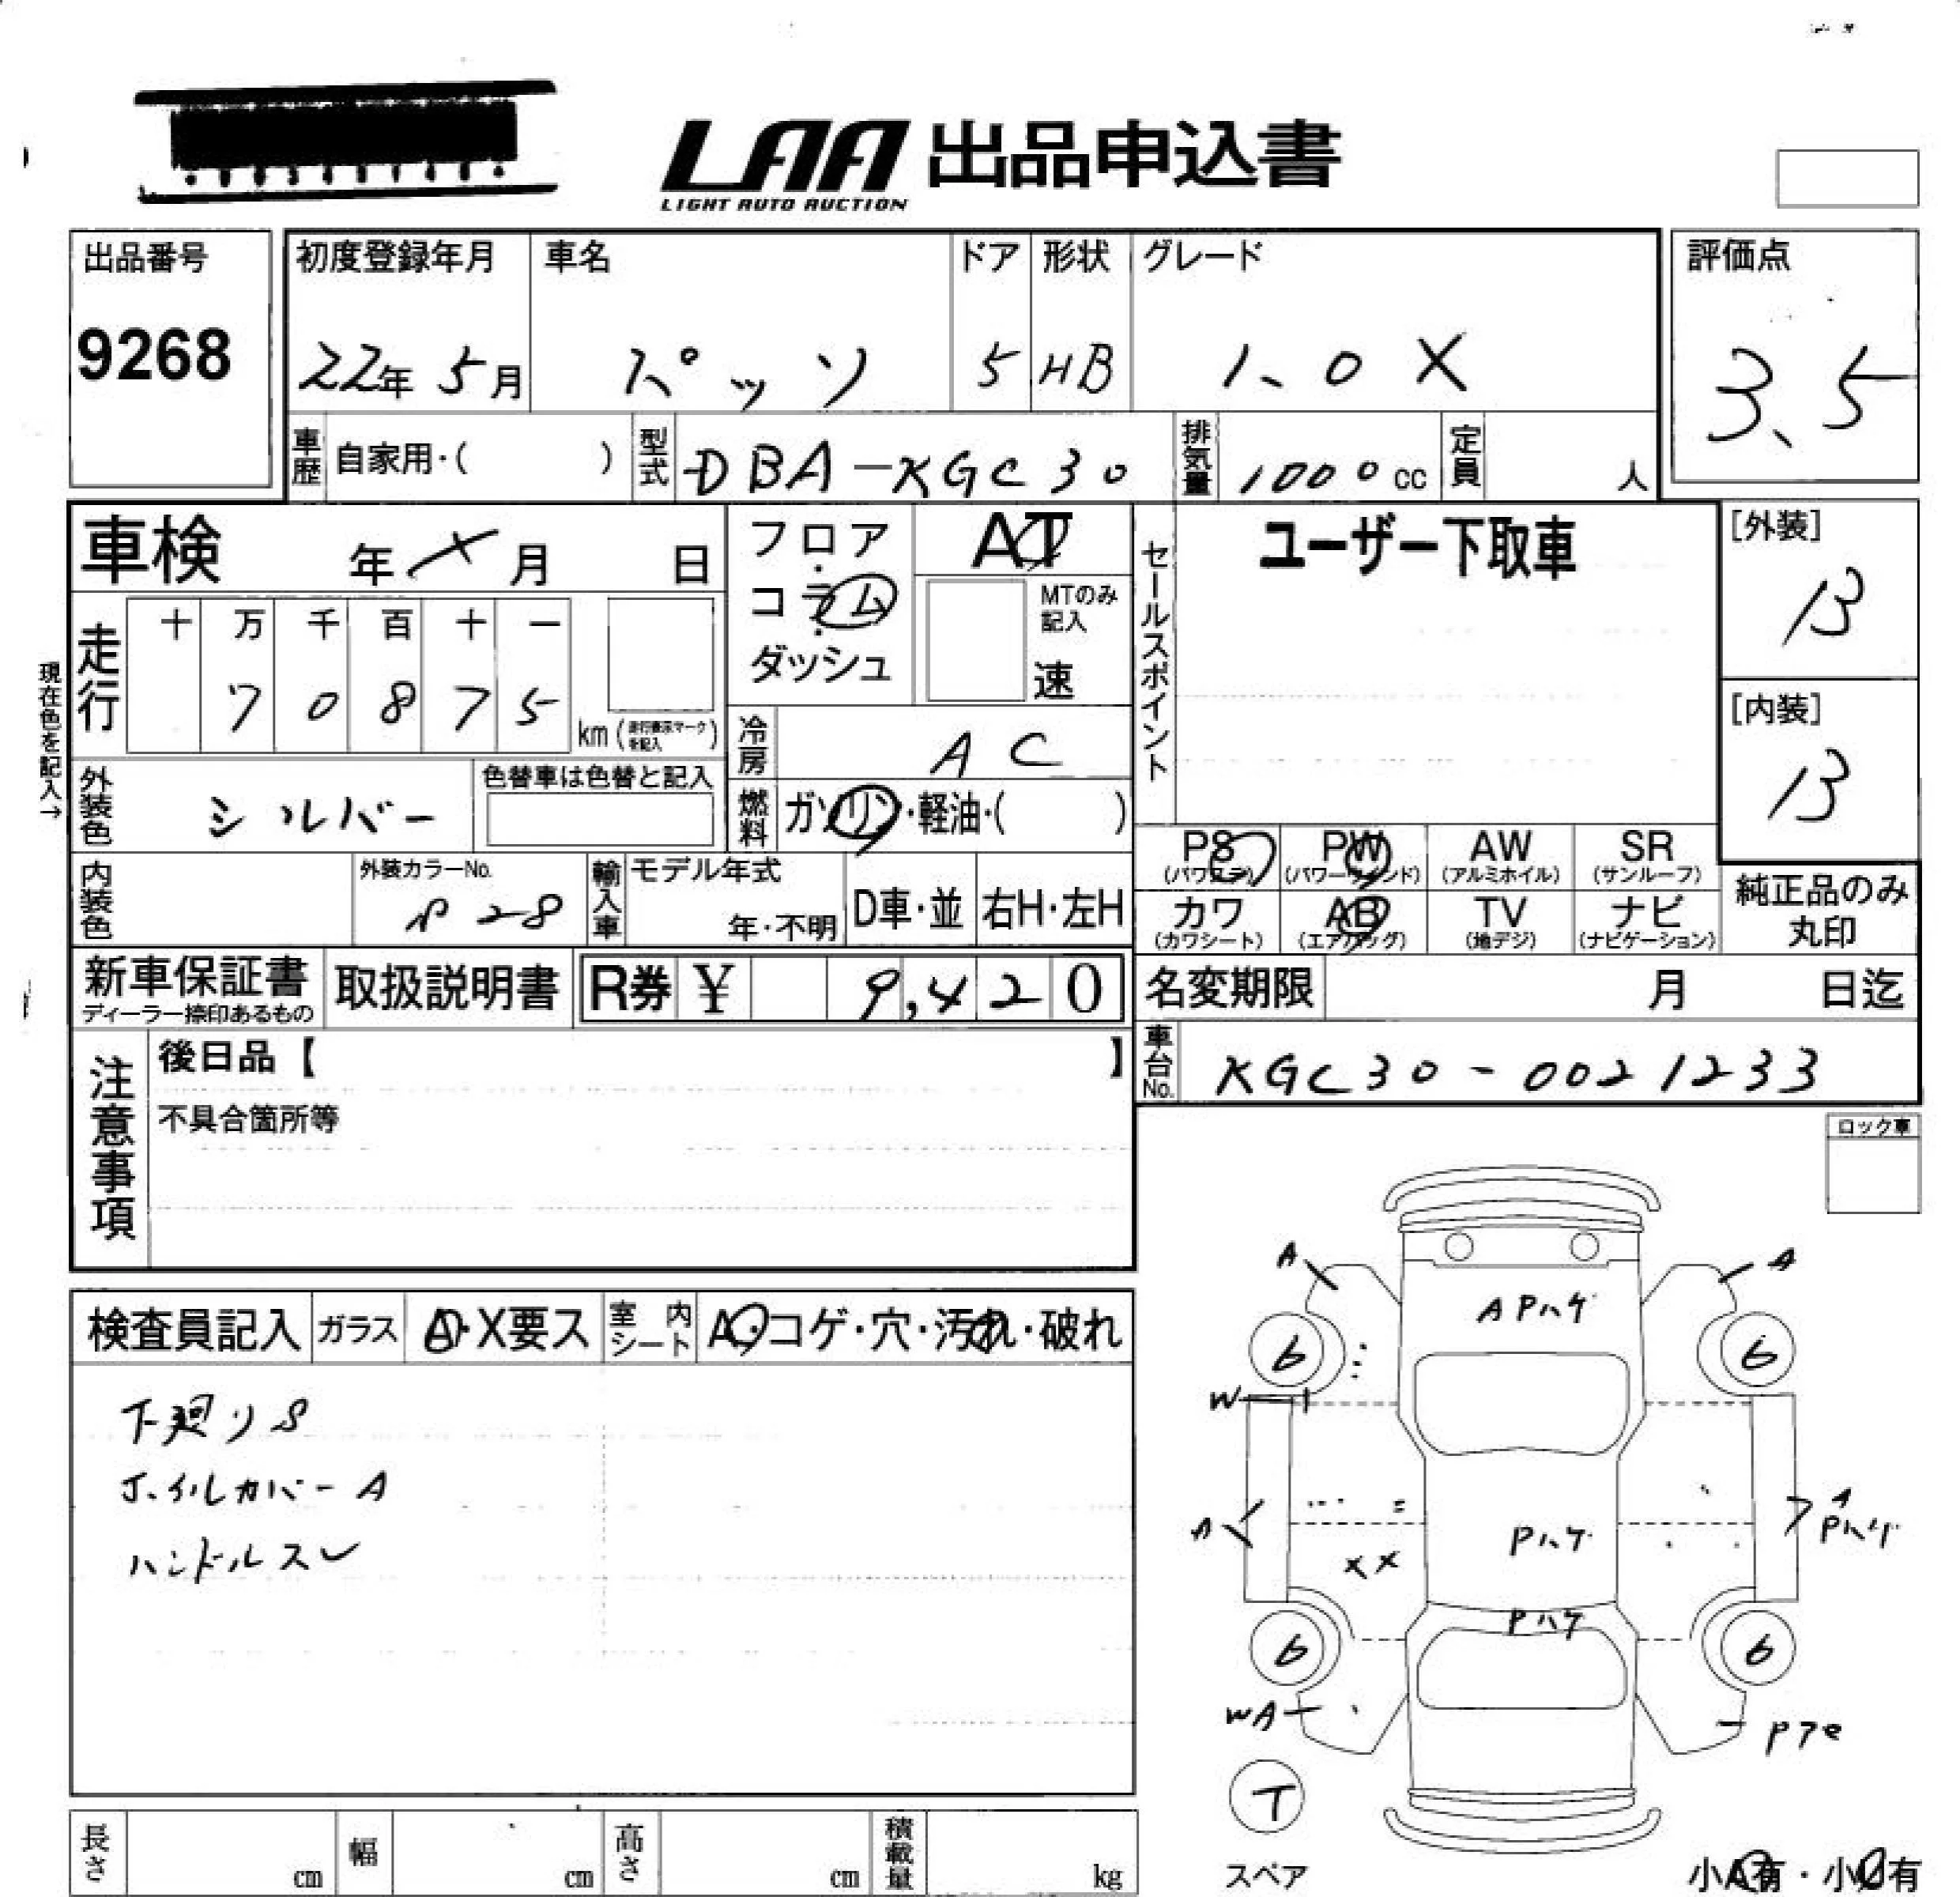 LAA 出品申込書
LIGHT AUTO AUCTION
出品番号
9268
初度登録年月 車名 ドア 形状 グレード
22年 5月 パッソ 5 HB 1.0X
評価点
3.5
車歴 自家用・( ) 型式 DBA-KGC30 排気量 1000cc 定員 人
車検 年 月 日
フロア・コラム・ダッシュ
AT
MTのみ記入
速
セールスポイント
ユーザー下取車
[外装]
B
[内装]
B
現在色を記入→
走行 十 万 千 百 十 一
7 0 8 7 5 km (走行表示マークを記入)
冷房 AC
外装色 シルバー
色替車は色替と記入
燃料 ガソリン・軽油・( )
内装色
外装カラーNo.
P28
輸入車 モデル年式
年・不明
D車・並 右H・左H
PS PW AW SR
(パワステ) (パワーウィンド) (アルミホイル) (サンルーフ)
カワ AB TV ナビ
(カワシート) (エアバッグ) (地デジ) (ナビゲーション)
純正品のみ
丸印
新車保証書
ディーラー捺印あるもの
取扱説明書
R券 ¥ 9,420
名変期限 月 日迄
車台No. KGC30-0021233
注意事項
後日品【 】
不具合箇所等
ロック車
検査員記入 ガラス A・X要ス 室内シート A・コゲ・穴・汚れ・破れ
下廻りS
ホイルカバーA
ハンドルスレ
A A
A Pハケ
6 6
W
A Pハケ A Pハケ
XX
Pハケ
6 6
WA Pアセ
T
スペア
小A有・小U有
長さ cm 幅 cm 高さ cm 積載量 kg